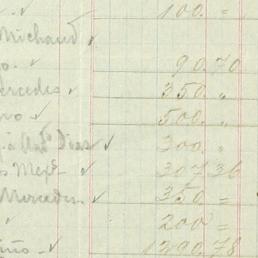 100. =
Michaud ✓
o. ✓ 90.70
ercedes ✓ 350 "
no ✓ 500. "
à Anto Dias ✓ 300 "
s Mexs ✓ 307.36
Mercedes ✓ 350 =
✓ 200 =
ño ✓ 1290.78